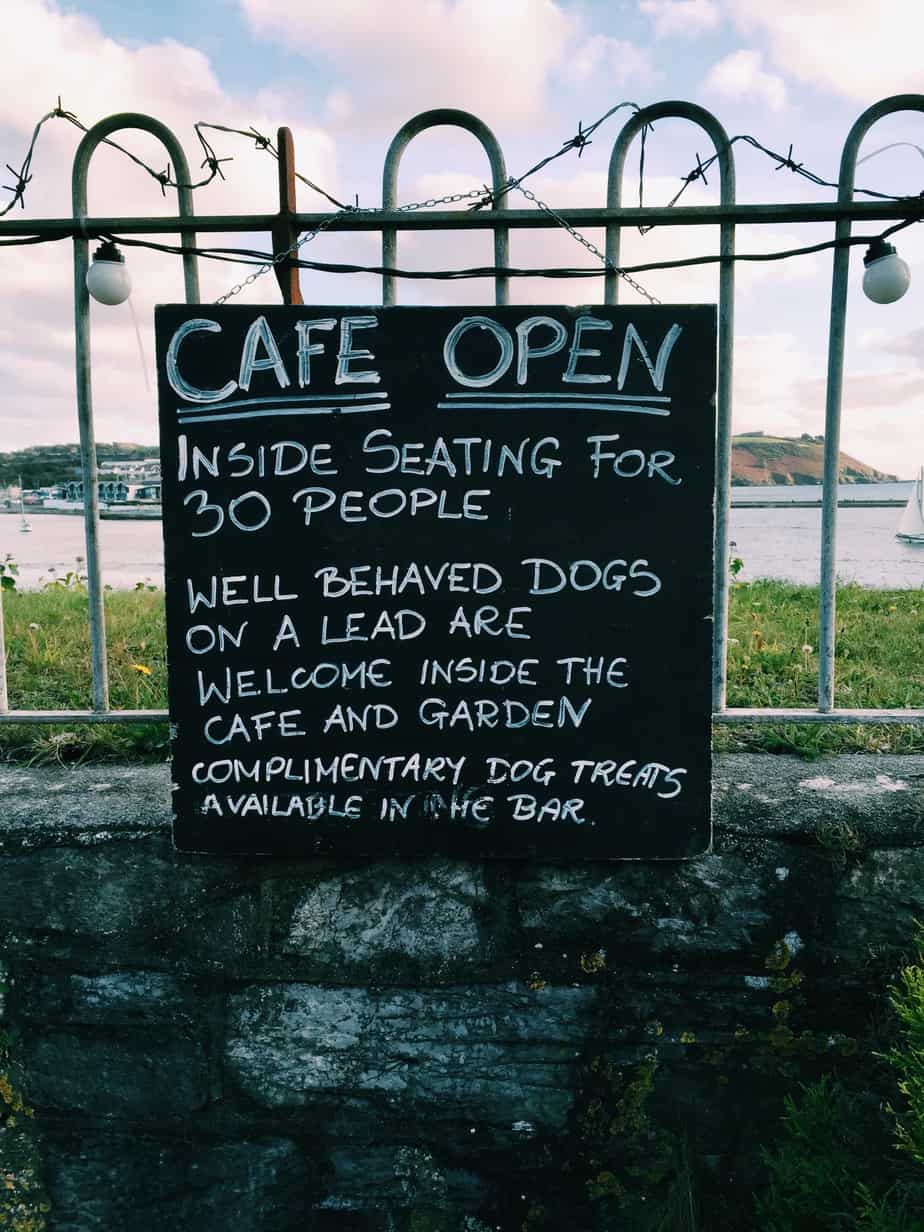 CAFE OPEN
INSIDE SEATING FOR
30 PEOPLE
WELL BEHAVED DOGS
ON A LEAD ARE
WELCOME INSIDE THE
CAFE AND GARDEN
COMPLIMENTARY DOG TREATS
AVAILABLE IN THE BAR.